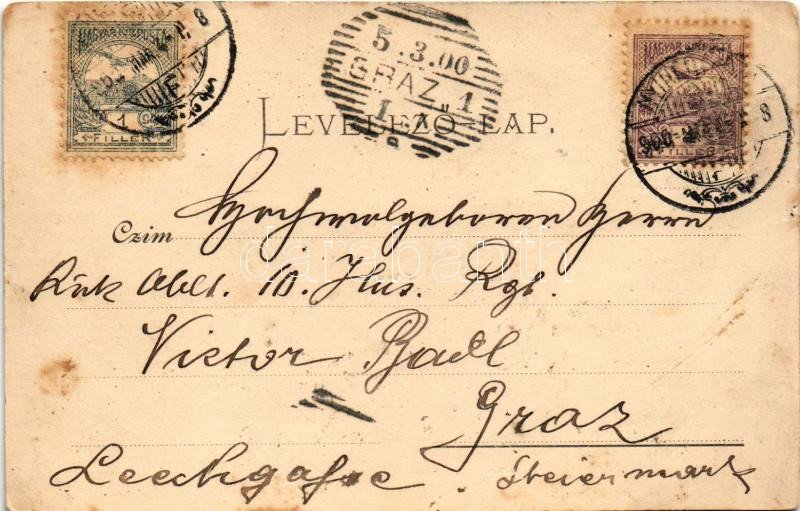 MAGYAR KIR. POSTA
1
FILLÉR
5.3.00
GRAZ 1
LEVELEZŐ-LAP.
MAGYAR KIR. POSTA
Czim Hochwolgeboren Herrn
darabanth
10. Hus. Rgt.
Victor
Graz
Leechgasse Steiermark